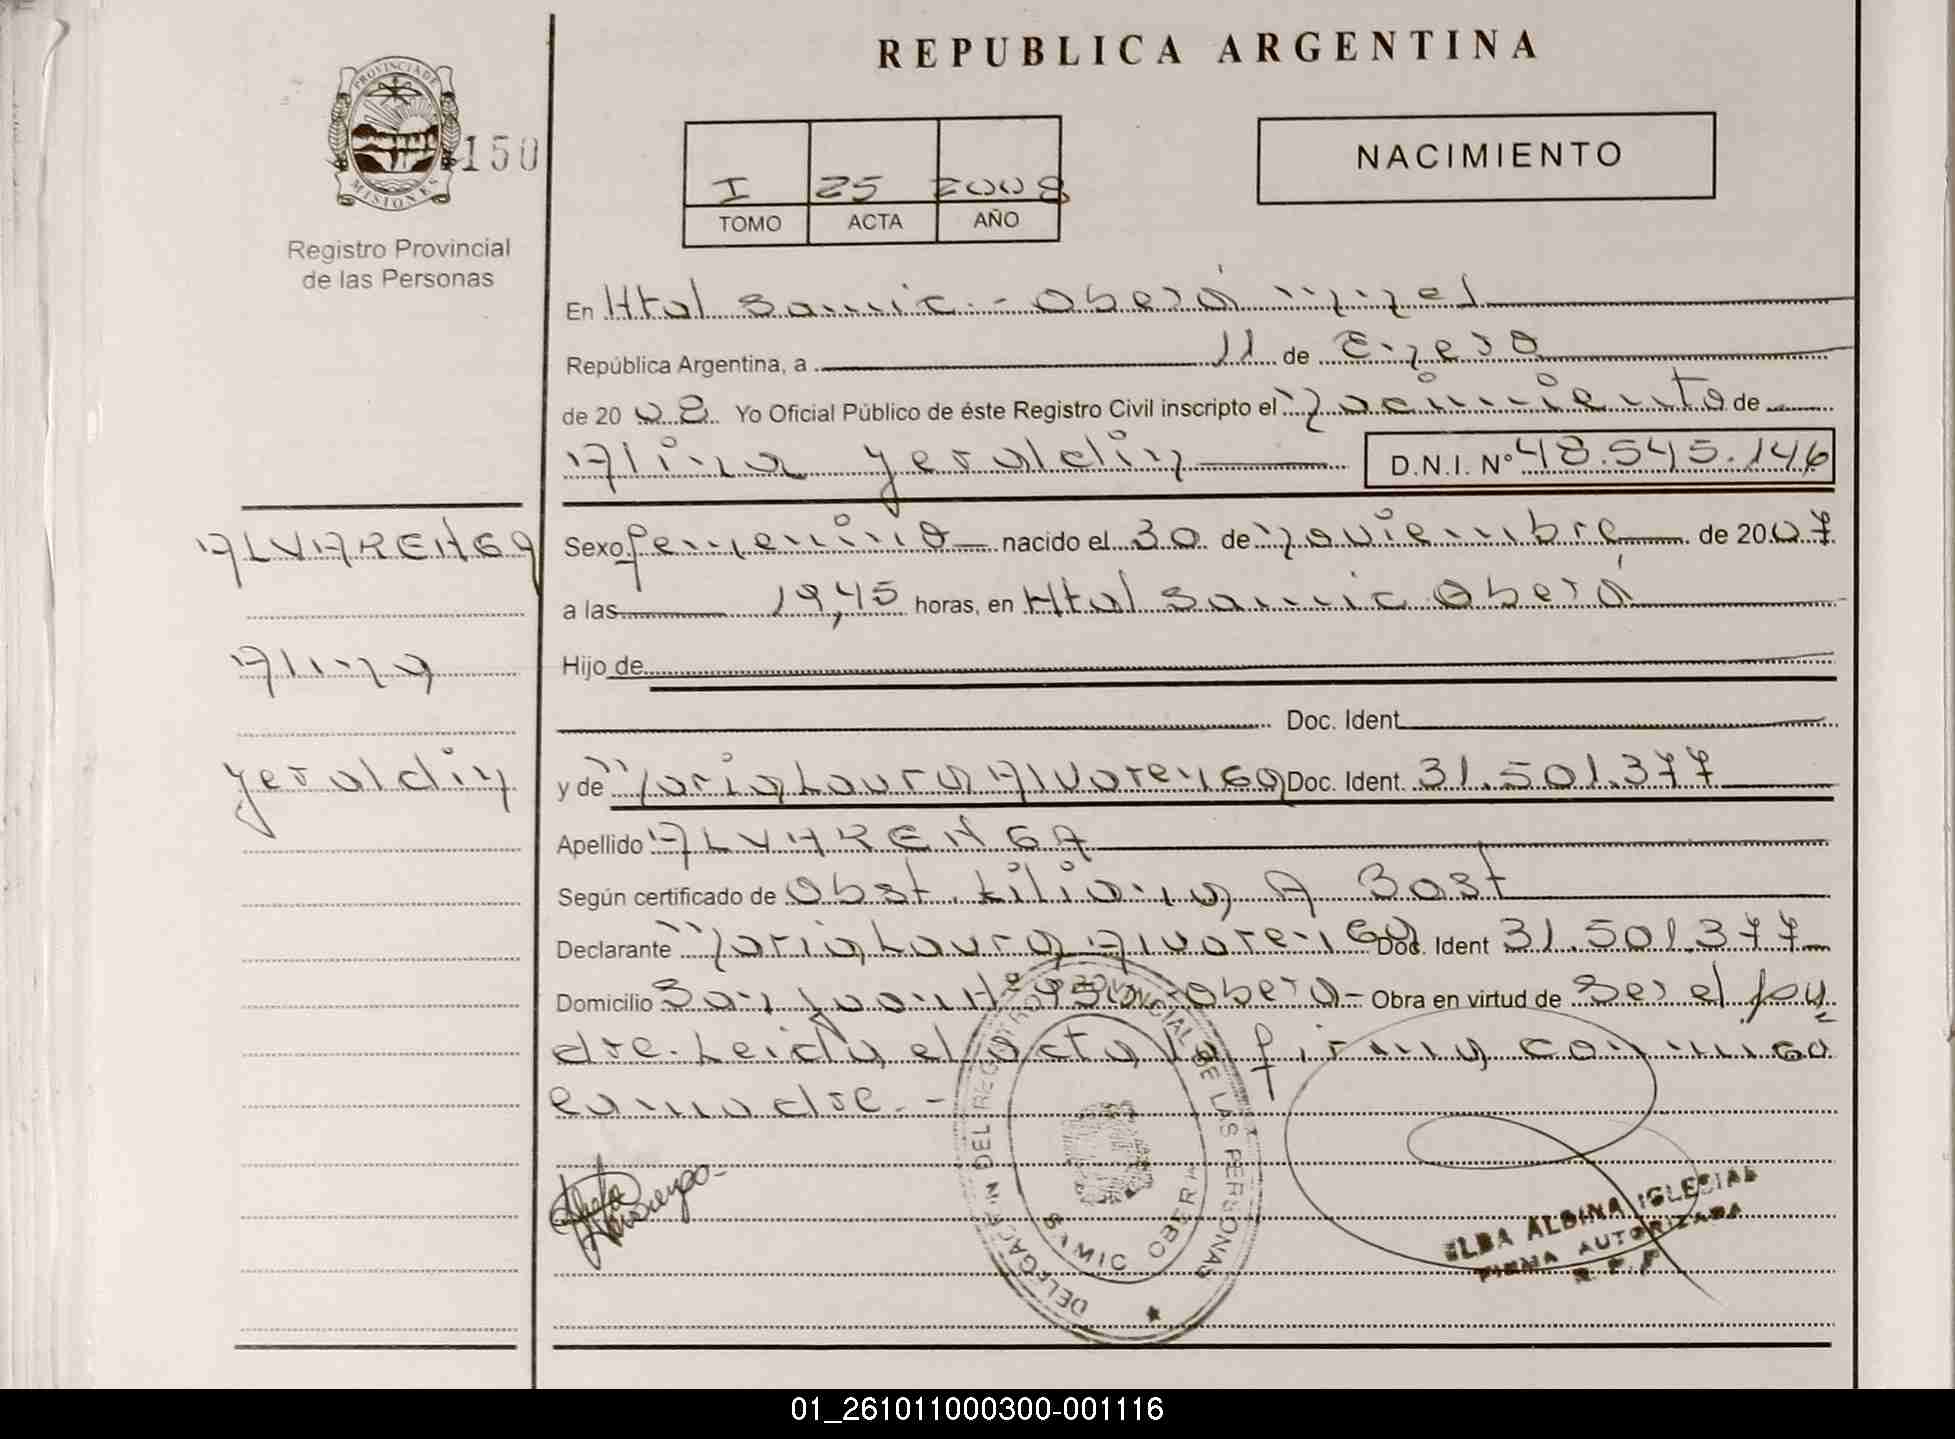 REPUBLICA ARGENTINA
PROVINCIA DE
MISIONES
150
Registro Provincial
de las Personas
I 25 2008
TOMO ACTA AÑO
NACIMIENTO
En Htal Samic - Oberá Mnes
República Argentina, a 11 de Enero
de 20 08 Yo Oficial Público de éste Registro Civil inscripto el Nacimiento de
Alina Yeraldin D.N.I. Nº 48.545.146
ALVARENGA
Sexo femenino nacido el 30 de Noviembre de 2007
a las 19,45 horas, en Htal Samic Oberá
Alina
Hijo de
Doc. Ident
Yeraldin
y de Maria Laura Alvarenga Doc. Ident. 31.501.377
Apellido ALVARENGA
Según certificado de Obst. Liliana A Bast
Declarante Maria Laura Alvarenga Doc. Ident 31.501.377
Domicilio San Juan Oberá - Obra en virtud de Ser el
dre. Leida el acta la firma conmigo
la madre. -
DELEGACION DEL REGISTRO PROVINCIAL DE LAS PERSONAS
SAMIC OBERA
ELBA ALBINA IGLESIAS
FIRMA AUTORIZADA
R. P. P
01_261011000300-001116